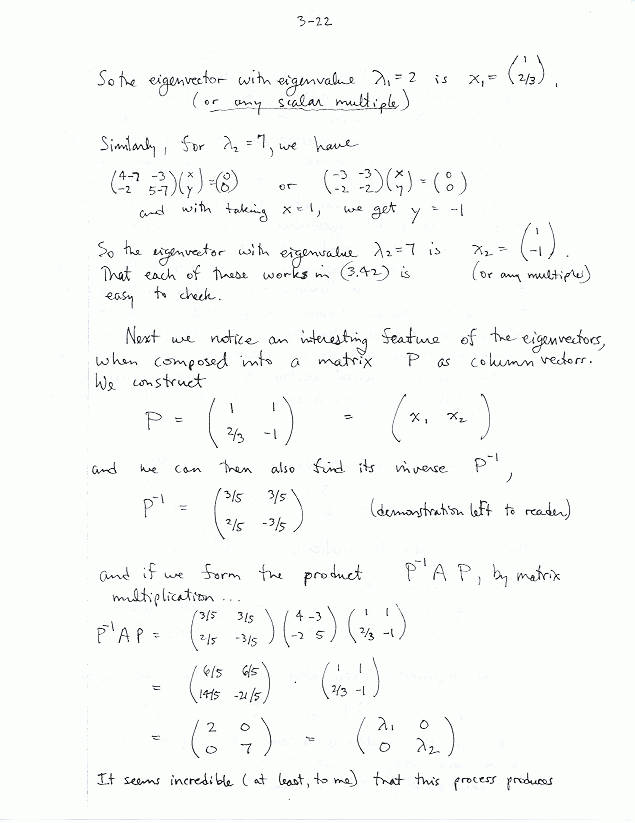 3-22
So the eigenvector with eigenvalue λ₁ = 2 is x₁ = (1; 2/3),
(or any scalar multiple)
Similarly, for λ₂ = 7, we have
(4-7 -3; -2 5-7)(x; y) = (0; 0) or (-3 -3; -2 -2)(x; y) = (0; 0)
and with taking x = 1, we get y = -1
So the eigenvector with eigenvalue λ₂ = 7 is x₂ = (1; -1).
That each of these works in (3.42) is (or any multiple)
easy to check.
Next we notice an interesting feature of the eigenvectors,
when composed into a matrix P as column vectors.
We construct
P = (1 1; 2/3 -1) = (x₁ x₂)
and we can then also find its inverse P⁻¹,
P⁻¹ = (3/5 3/5; 2/5 -3/5) (demonstration left to reader)
and if we form the product P⁻¹ A P, by matrix
multiplication ...
P⁻¹AP = (3/5 3/5; 2/5 -3/5)(4 -3; -2 5)(1 1; 2/3 -1)
= (6/5 6/5; 14/5 -21/5) · (1 1; 2/3 -1)
= (2 0; 0 7) = (λ₁ 0; 0 λ₂)
It seems incredible (at least, to me) that this process produces